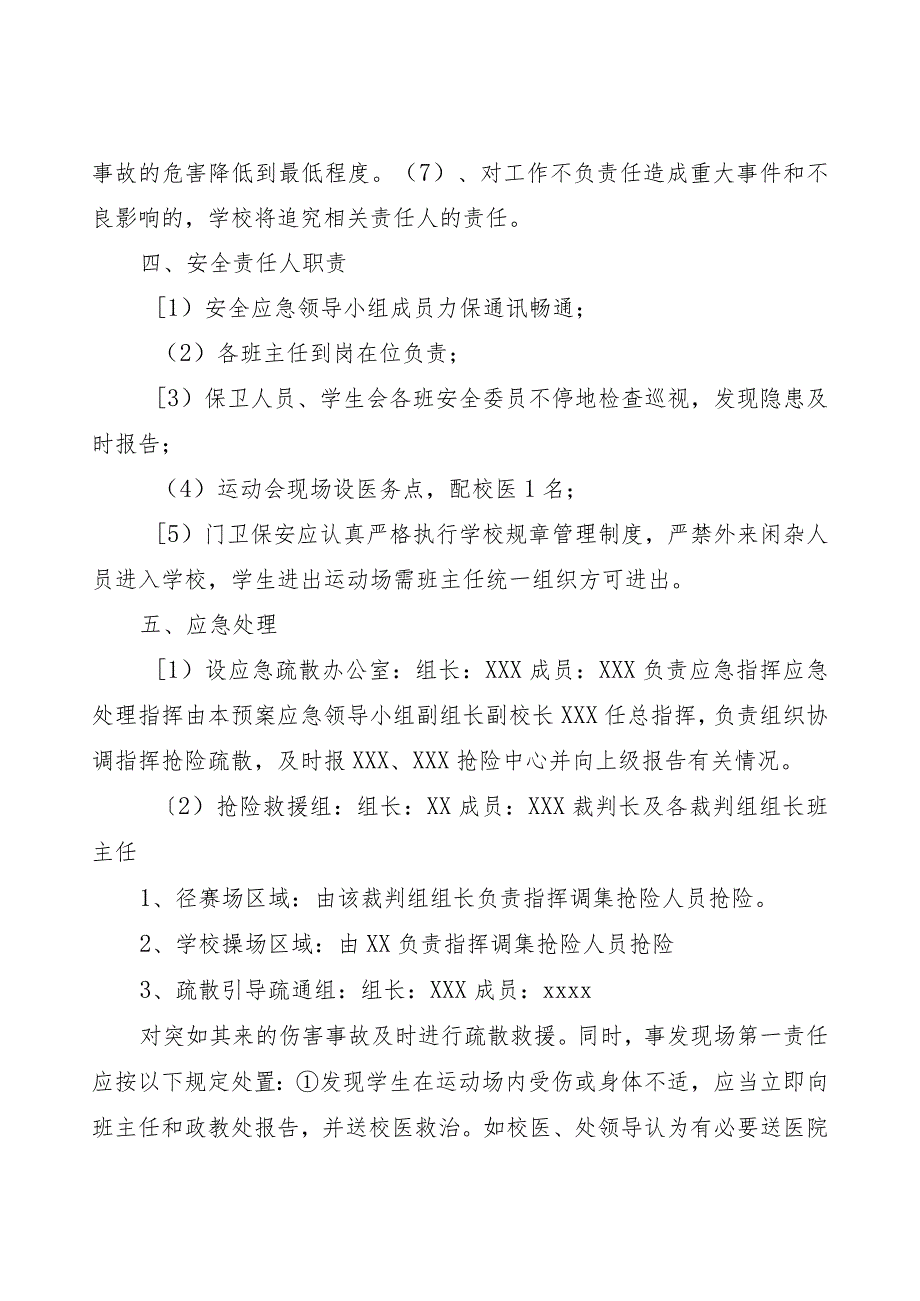 事故的危害降低到最低程度。（7）、对工作不负责任造成重大事件和不
良影响的，学校将追究相关责任人的责任。
四、安全责任人职责
[1）安全应急领导小组成员力保通讯畅通；
（2）各班主任到岗在位负责；
[3）保卫人员、学生会各班安全委员不停地检查巡视，发现隐患及
时报告；
（4）运动会现场设医务点，配校医1名；
[5）门卫保安应认真严格执行学校规章管理制度，严禁外来闲杂人
员进入学校，学生进出运动场需班主任统一组织方可进出。
五、应急处理
[1）设应急疏散办公室：组长：XXX 成员：XXX 负责应急指挥应急
处理指挥由本预案应急领导小组副组长副校长 XXX 任总指挥，负责组织协
调指挥抢险疏散，及时报 XXX、XXX 抢险中心并向上级报告有关情况。
〔2）抢险救援组：组长：XX 成员：XXX 裁判长及各裁判组组长班
主任
1、径赛场区域：由该裁判组组长负责指挥调集抢险人员抢险。
2、学校操场区域：由 XX 负责指挥调集抢险人员抢险
3、疏散引导疏通组：组长：XXX 成员：xxxx
对突如其来的伤害事故及时进行疏散救援。同时，事发现场第一责任
应按以下规定处置：①发现学生在运动场内受伤或身体不适，应当立即向
班主任和政教处报告，并送校医救治。如校医、处领导认为有必要送医院